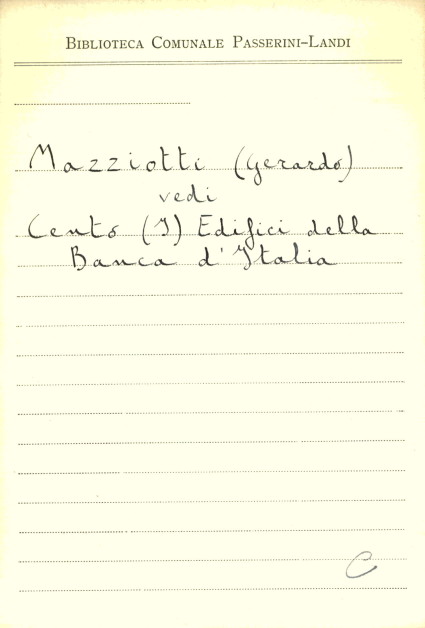 Biblioteca Comunale Passerini-Landi
Mazziotti (Gerardo)
vedi
Cento (I) Edifici della
Banca d'Italia
C